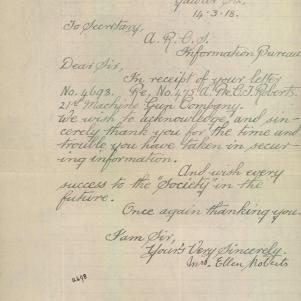 14-3-18.
To Secretary,
A. R. C. S.
Information Bureau
Dear Sir,
In receipt of your letter
No. 4693. Re, No. 475 A. Roberts.
21st Machine Gun Company.
We wish to acknowledge, and sin-
cerely thank you for the time and
trouble you have taken in secur-
ing information.
And wish every
success to the "Society" in the
future.
Once again thanking you.
I am Sir,
Your's Very Sincerely.
Mrs. Ellen Roberts